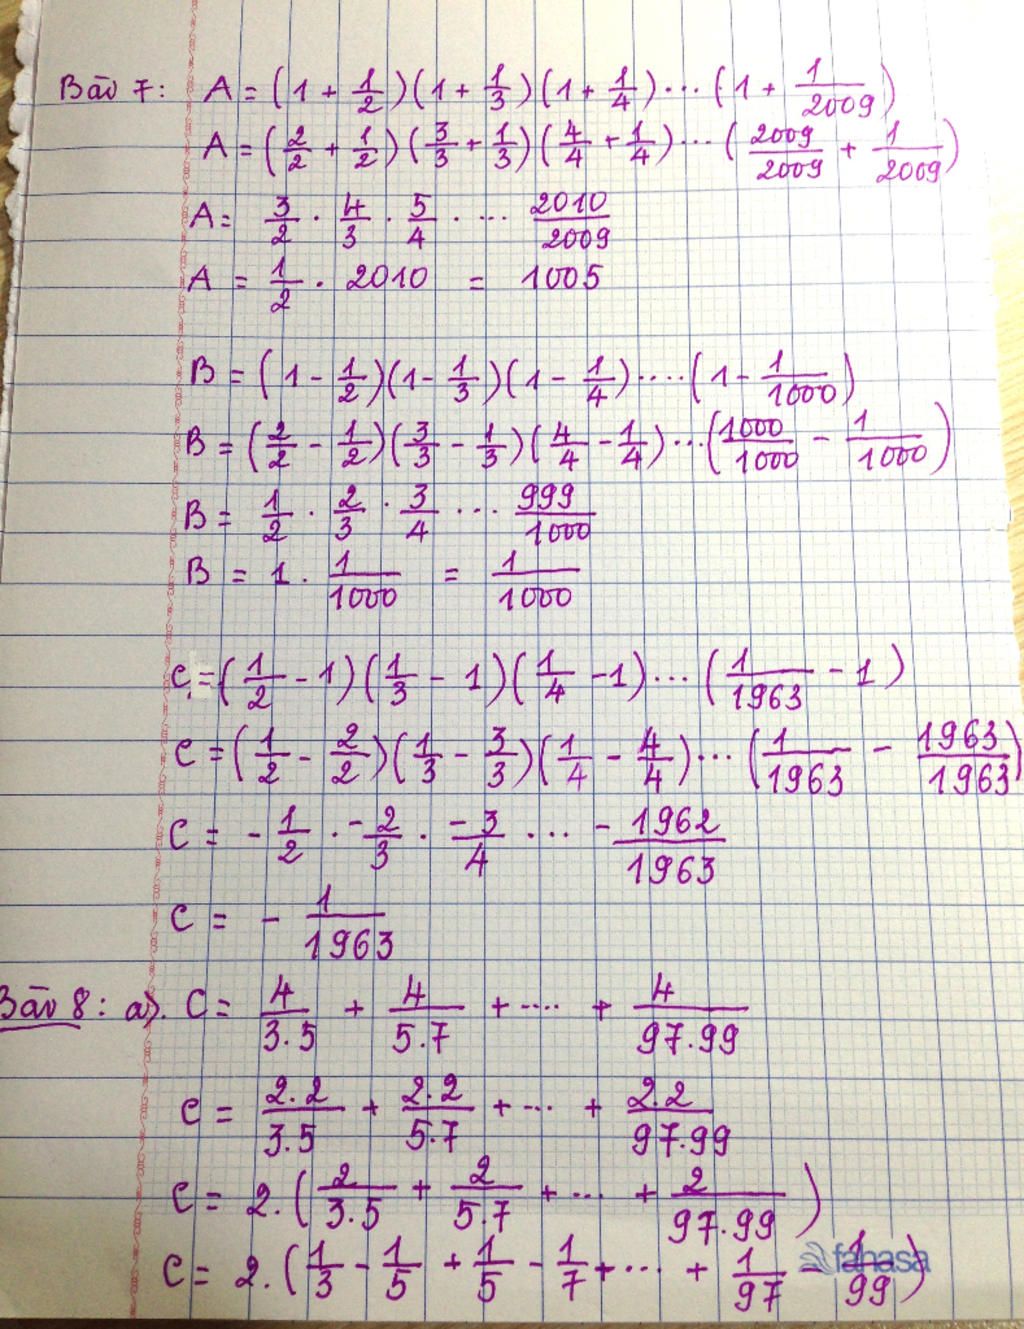 Bài 7: A = (1 + 1/2)(1 + 1/3)(1 + 1/4)...(1 + 1/2009)
A = (2/2 + 1/2)(3/3 + 1/3)(4/4 + 1/4)...(2009/2009 + 1/2009)
A = 3/2 . 4/3 . 5/4 . ... 2010/2009
A = 1/2 . 2010 = 1005
B = (1 - 1/2)(1 - 1/3)(1 - 1/4)....(1 - 1/1000)
B = (2/2 - 1/2)(3/3 - 1/3)(4/4 - 1/4)...(1000/1000 - 1/1000)
B = 1/2 . 2/3 . 3/4 ... 999/1000
B = 1 . 1/1000 = 1/1000
C = (1/2 - 1)(1/3 - 1)(1/4 - 1)...(1/1963 - 1)
C = (1/2 - 2/2)(1/3 - 3/3)(1/4 - 4/4)...(1/1963 - 1963/1963)
C = -1/2 . -2/3 . -3/4 . ... -1962/1963
C = - 1/1963
Bài 8: a). C = 4/3.5 + 4/5.7 + .... + 4/97.99
C = 2.2/3.5 + 2.2/5.7 + ... + 2.2/97.99
C = 2.(2/3.5 + 2/5.7 + ... + 2/97.99)
C = 2.(1/3 - 1/5 + 1/5 - 1/7 + ... + 1/97 - 1/99)
fahasa